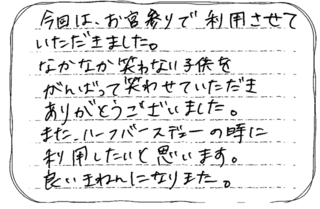 今回は、お宮参りで利用させて
いただきました。
なかなか笑わない子供を
がんばって笑わせていただき
ありがとうございました。
また、ハーフバースデューの時に
利用したいと思います。
良いきねんになりました。